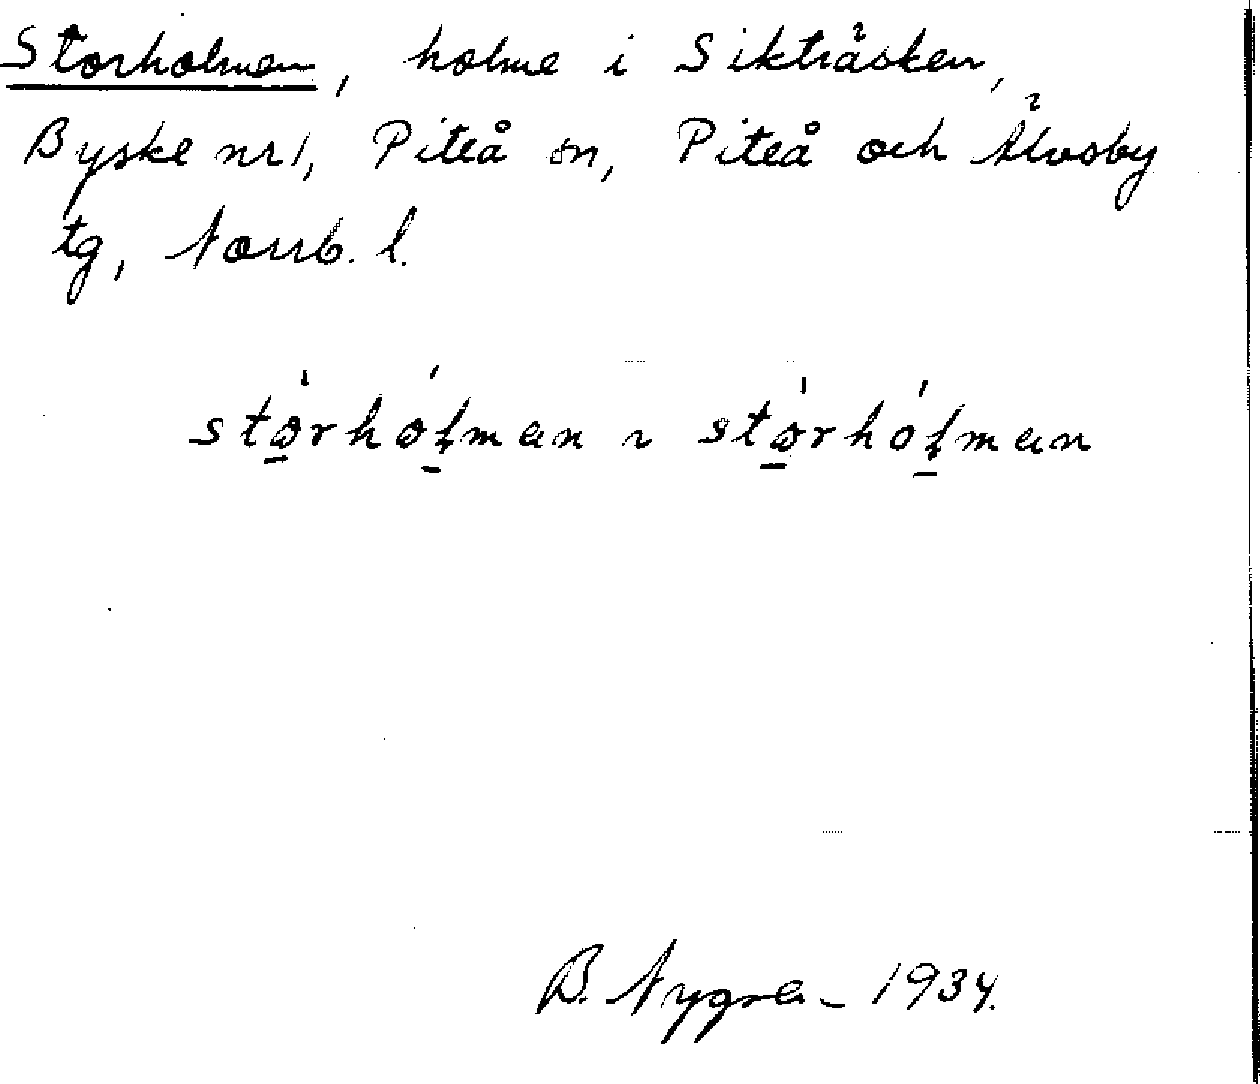 Storholmen, holme i Sikträsken,
Byske nr 1, Piteå sn, Piteå och Älvsby
tg, Norrb. l.
B. Nygren 1934.